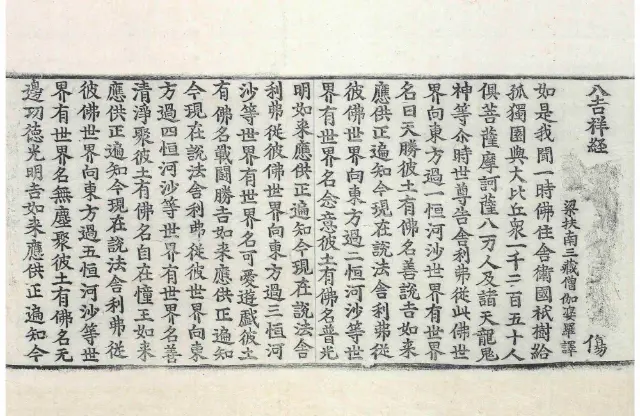 八吉祥経
梁扶南三藏僧伽婆羅譯
傷
如是我聞一時佛住舍衛國祇樹給
孤獨園與大比丘衆一千二百五十人
俱菩薩摩訶薩八万人及諸天龍鬼
神等尒時世尊告舍利弗從此佛世
界向東方過一恒河沙世界有世界
名曰天勝彼土有佛名善說吉如来
應供正遍知今現在說法舍利弗從
彼佛世界向東方過二恒河沙等世
界有世界名念意彼土有佛名普光
明如来應供正遍知今現在說法舍
利弗從彼佛世界向東方過三恒河
沙等世界有世界名可愛遊戲彼土
有佛名戰鬪勝吉如来應供正遍知
今現在說法舍利弗從彼世界向東
方過四恒河沙等世界有世界名善
清淨聚彼土有佛名自在憧王如来
應供正遍知今現在說法舍利弗從
彼佛世界向東方過五恒河沙等世
界有世界名無塵聚彼土有佛名无
邊功德光明吉如来應供正遍知今